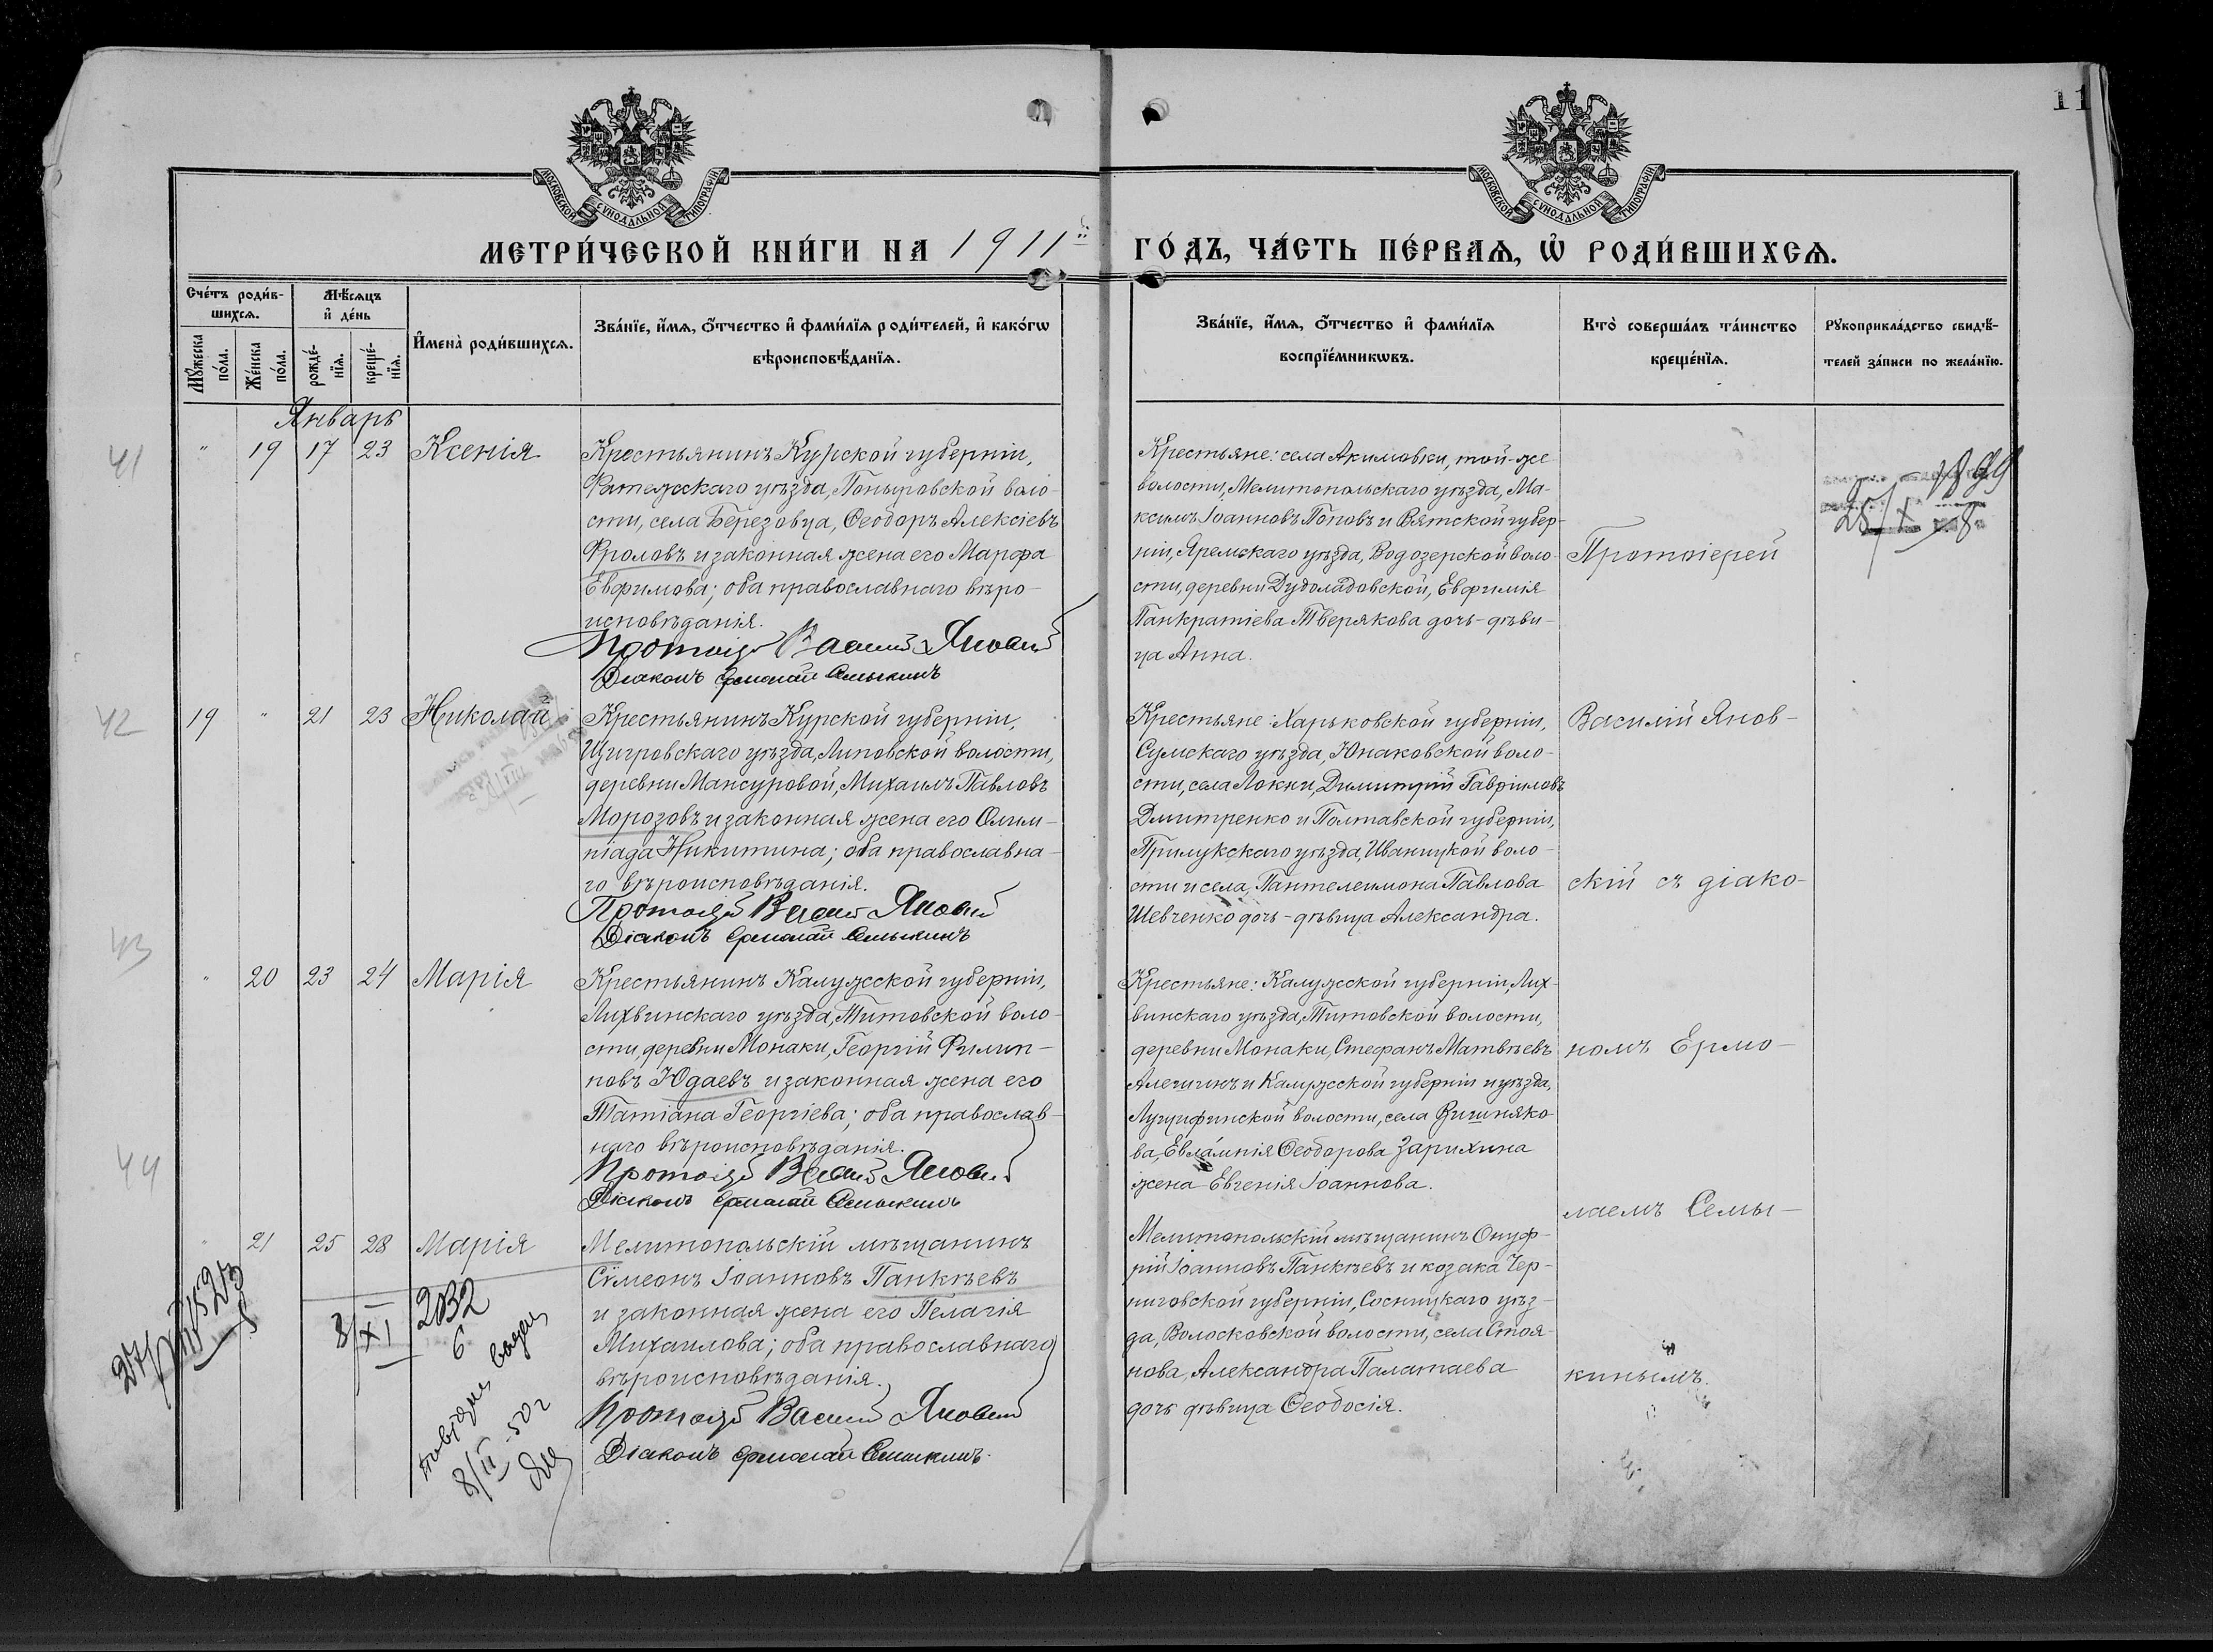 11
МОСКОВСКОЙ СѴНОДАЛЬНОЙ ТИПОГРАФІИ
МОСКОВСКОЙ СѴНОДАЛЬНОЙ ТИПОГРАФІИ
МЕТРИ́ЧЕСКОЙ КНИ́ГИ НА 1911й ГО́ДЪ, ЧА́СТЬ ПЕ́РВАѦ, Ѡ РОДИ́ВШИХСѦ.
Сче́тъ роди́в-
шихсѧ.
Мѣ́сѧцъ
и҆ де́нь
Мꙋ́жеска
по́ла.
Же́нска
по́ла.
рожде́-
нїѧ.
креще́-
нїѧ.
И҆мена̀ роди́вшихсѧ.
Зва́нїе, и҆́мѧ, ѻ҆́тчество и҆ фами́лїѧ роди́телей, и҆ како́гѡ
вѣроисповѣ́данїѧ.
Зва́нїе, и҆́мѧ, ѻ҆́тчество и҆ фами́лїѧ
воспрїе́мникѡвъ.
Кто̀ соверша́лъ та́инство
креще́нїѧ.
Рꙋкоприкла́дство свидѣ́-
телей за́писи по жела́нїю.
Январь
41
" 19 17 23 Ксенія
Крестьянинъ Курской губерніи,
Фатежскаго уѣзда, Поныровской воло-
сти, села Березовца, Ѳеодоръ Алексіевъ
Фроловъ и законная жена его Марѳа
Евфимова; оба православнаго вѣро-
исповѣданія.
Протоіерей Василій Яновскій
Діаконъ Ермолай Семыкинъ
Крестьяне: села Акимовки, той-же
волости, Мелитопольскаго уѣзда, Ма-
ксимъ Іоанновъ Поповъ и Вятской губер-
ніи, Яремскаго уѣзда, Водозерской воло-
сти, деревни Дудоладовской, Евфимія
Панкратіева Тверякова дочь-дѣви-
ца Анна.
Протоіерей
1899
42
19 " 21 23 Николай
Крестьянинъ Курской губерніи,
Щигровскаго уѣзда, Липовской волости,
деревни Мансуровой, Михаилъ Павловъ
Морозовъ и законная жена его Олим-
піада Никитина; оба православна-
го вѣроисповѣданія.
Протоіерей Василій Яновскій
Діаконъ Ермолай Семыкинъ
Крестьяне: Харьковской губерніи,
Сумскаго уѣзда, Юнаковской воло-
сти, села Локни, Димитрій Гавріиловъ
Дмитренко и Полтавской губерніи,
Прилукскаго уѣзда, Иваницкой воло-
сти и села, Пантелеимона Павлова
Шевченко дочь-дѣвица Александра.
Василій Янов-
скій съ діако-
43
" 20 23 24 Марія
Крестьянинъ Калужской губерніи,
Лихвинскаго уѣзда, Титовской воло-
сти, деревни Монаки, Георгій Филип-
повъ Юдаевъ и законная жена его
Татіана Георгіева; оба православ-
наго вѣроисповѣданія.
Протоіерей Василій Яновскій
Діаконъ Ермолай Семыкинъ
Крестьяне: Калужской губерніи, Лих-
винскаго уѣзда, Титовской волости,
деревни Монаки, Стефанъ Матвѣевъ
Алешинъ и Калужской губерніи и уѣзда,
волости, села Вишняко-
ва, Евлампія Ѳеодорова Зарихина
жена Евгенія Іоаннова.
номъ Ермо-
44
" 21 25 28 Марія
Мелитопольскій мѣщанинъ
Сѵмеонъ Іоанновъ Панкѣевъ
и законная жена его Пелагія
Михаилова; оба православнаго
вѣроисповѣданія.
Протоіерей Василій Яновскій
Діаконъ Ермолай Семыкинъ.
Мелитопольскій мѣщанинъ Онуф-
рій Іоанновъ Панкѣевъ и козака Чер-
ниговской губерніи, Сосницкаго уѣз-
да, Волосковской волости, села Стоя-
нова, Александра Палатаева
дочь дѣвица Ѳеодосія.
лаемъ Семы-
кинымъ.
8/XI
2032
6
8/II-50г